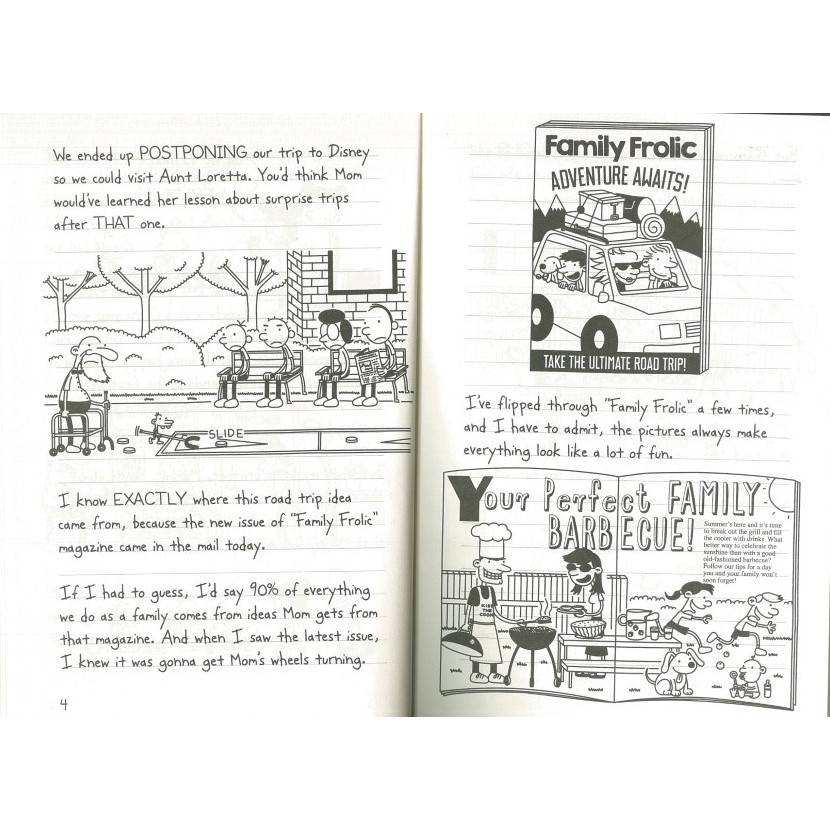 We ended up POSTPONING our trip to Disney
so we could visit Aunt Loretta. You'd think Mom
would've learned her lesson about surprise trips
after THAT one.
SLIDE
I know EXACTLY where this road trip idea
came from, because the new issue of "Family Frolic"
magazine came in the mail today.
If I had to guess, I'd say 90% of everything
we do as a family comes from ideas Mom gets from
that magazine. And when I saw the latest issue,
I knew it was gonna get Mom's wheels turning.
4
Family Frolic
ADVENTURE AWAITS!
TAKE THE ULTIMATE ROAD TRIP!
I've flipped through "Family Frolic" a few times,
and I have to admit, the pictures always make
everything look like a lot of fun.
Your Perfect FAMILY
BARBECUE!
Summer's here and it's time
to break out the grill and fill
the cooler with drinks. What
better way to celebrate the
sunshine than with a good
old-fashioned barbecue?
Follow our tips for a day
you and your family won't
soon forget!
KISS
THE
COOK